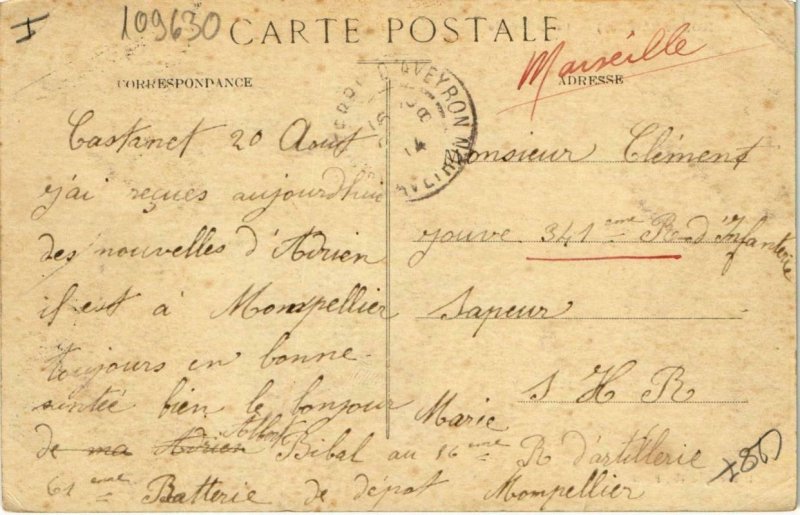 109630
CARTE POSTALE
Marseille
CORRESPONDANCE
ADRESSE
AVEYRON
14
Castanet 20 Aout
j'ai reçues aujourdhui
des nouvelles d'Adrien
il est à Mompellier
toujours en bonne
sintée bien le bonjour
Marie
de ma Adrien Albert Bibal au 16 eme R d'artillerie
61 eme Batterie de dépot Mompellier
Monsieur Clément
Jouve 341 eme R d'Infanterie
Sapeur
S H R